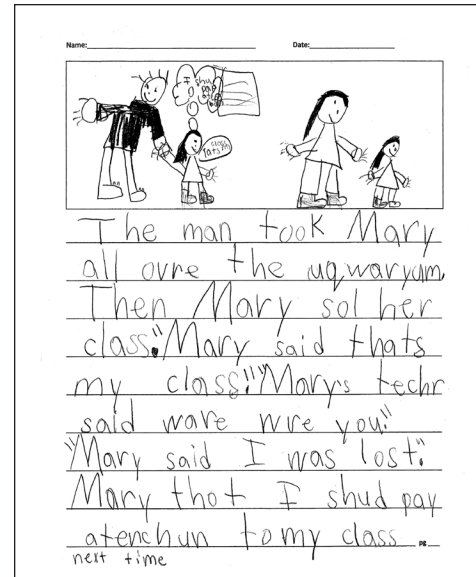 Name:
Date:
The man took Mary
all ovre the uqwaryum.
Then Mary sol her
class."Mary said thats
my class!""Mary's techr
said ware wre you."
"Mary said I was lost."
Mary thot I shud pay
atenchun to my class pg
next time